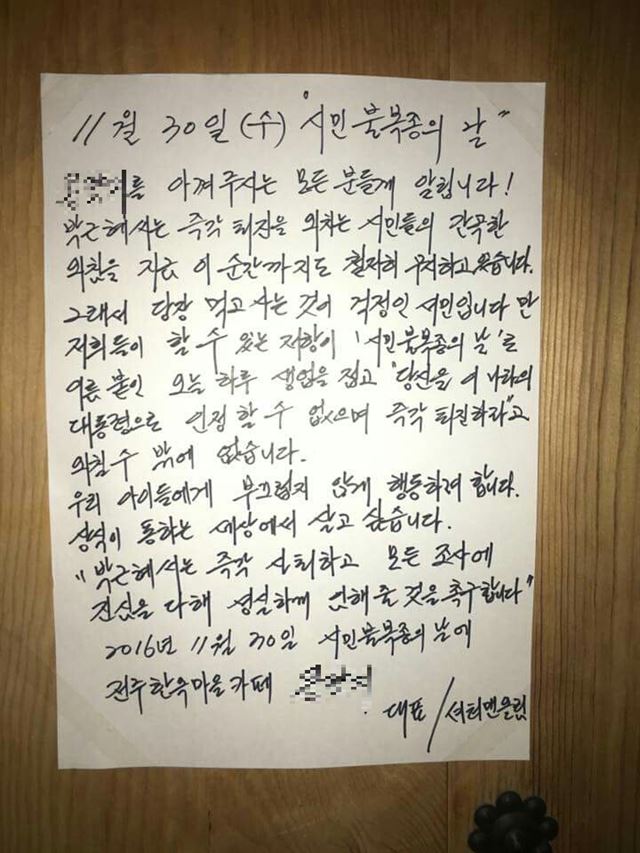 11월 30일(수) "시민 불복종의 날"
를 아껴주시는 모든 분들께 알립니다!
박근혜씨는 즉각 퇴진을 외치는 시민들의 간곡한
외침을 지금 이 순간까지도 철저히 무시하고 있습니다.
그래서 당장 먹고사는 것이 걱정인 서민입니다 만
저희들이 할 수 있는 저항이 '시민불복종의 날'로
이름 붙인 오늘 하루 생업을 접고 "당신을 이 나라의
대통령으로 인정 할 수 없으며 즉각 퇴진하라"고
외칠 수 밖에 없습니다.
우리 아이들에게 부끄럽지 않게 행동하려 합니다.
상식이 통하는 세상에서 살고 싶습니다.
"박근혜씨는 즉각 사퇴하고 모든 조사에
진심을 다해 성실하게 임해 줄 것을 촉구합니다"
2016년 11월 30일 시민불복종의 날에
전주한옥마을 카페
대표 /